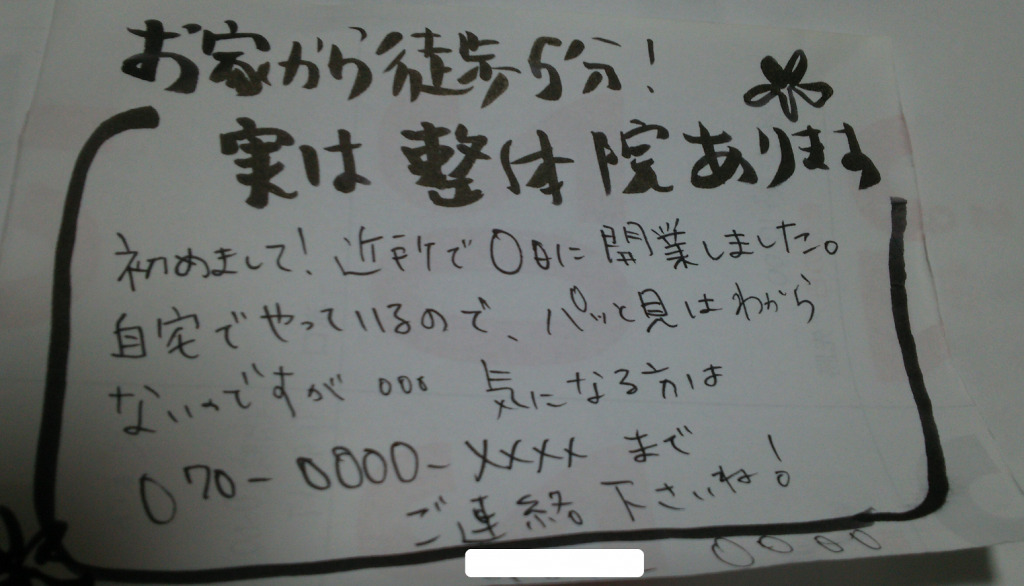 お家から徒歩5分!
実は整体院あります
初めまして!近所で〇日に開業しました。
自宅でやっているので、パッと見はわから
ないのですが… 気になる方は
070-0000-XXXXまで
ご連絡下さいね!
0000